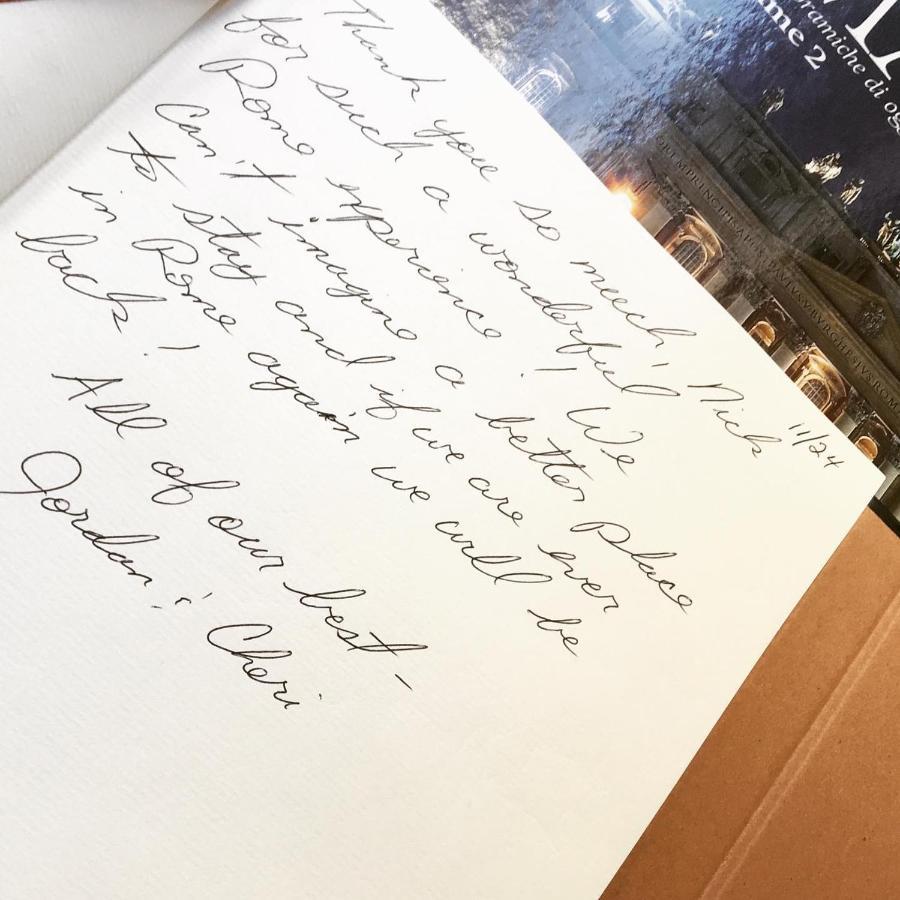 11/24
Thank you so much, Nick
for such a wonderful
Rome experience! We
can't imagine a better place
to stay and if we are ever
in Rome again we will be
back!
All of our best -
Jordan & Cheri
ramiche di og
me 2
PAVLVS V BVRGHESIVS ROMA